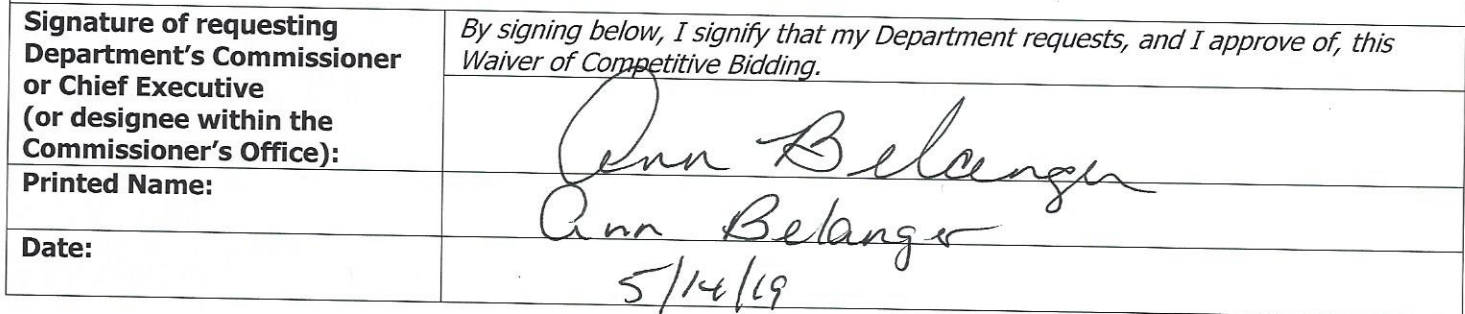 Signature of requesting
Department's Commissioner
or Chief Executive
(or designee within the
Commissioner's Office):
By signing below, I signify that my Department requests, and I approve of, this
Waiver of Competitive Bidding.
Ann Belanger
Printed Name:
Ann Belanger
Date:
5/14/19